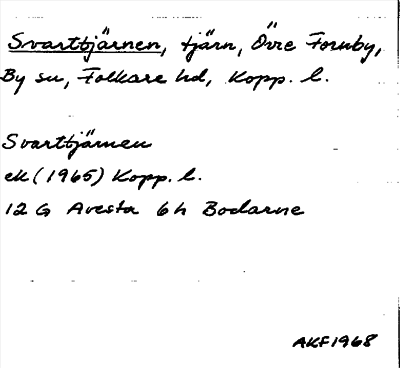 Svarttjärnen, tjärn, Övre Fornby,
By sn, Folkare hd, Kopp. l.
Svarttjärnen
ek (1965) Kopp. l.
12 G Avesta 6h Bodarne
AKF 1968